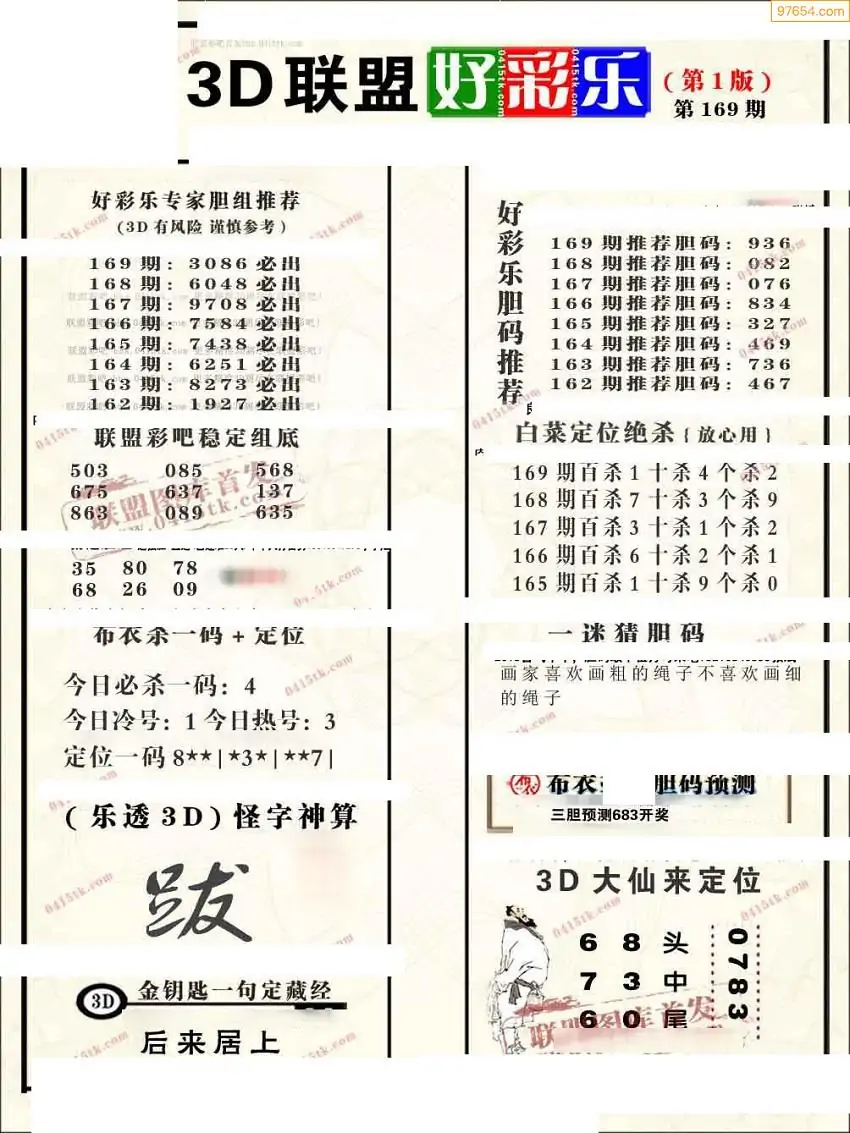 97654.com
3D联盟好彩乐
(第1版)
第169期
好彩乐专家胆组推荐
(3D有风险 谨慎参考)
169期: 3086必出
168期: 6048必出
167期: 9708必出
166期: 7584必出
165期: 7438必出
164期: 6251必出
163期: 8273必出
162期: 1927必出
联盟彩吧稳定组底
503 085 568
675 637 137
863 089 635
联盟图库首发
www.0415tk.com
35 80 78
68 26 09
布衣杀一码+定位
今日必杀一码: 4
今日冷号: 1 今日热号: 3
定位一码 8**|*3*|**7|
(乐透3D)怪字神算
跋
3D 金钥匙一句定藏经
后来居上
好彩乐胆码推荐
169期推荐胆码: 936
168期推荐胆码: 082
167期推荐胆码: 076
166期推荐胆码: 834
165期推荐胆码: 327
164期推荐胆码: 469
163期推荐胆码: 736
162期推荐胆码: 467
白菜定位绝杀{放心用}
169期百杀1十杀4个杀2
168期百杀7十杀3个杀9
167期百杀3十杀1个杀2
166期百杀6十杀2个杀1
165期百杀1十杀9个杀0
一迷猜胆码
画家喜欢画粗的绳子不喜欢画细
的绳子
布衣 胆码预测
三胆预测683开奖
3D大仙来定位
6 8 头
7 3 中
6 0 尾
0783
联盟图库首发